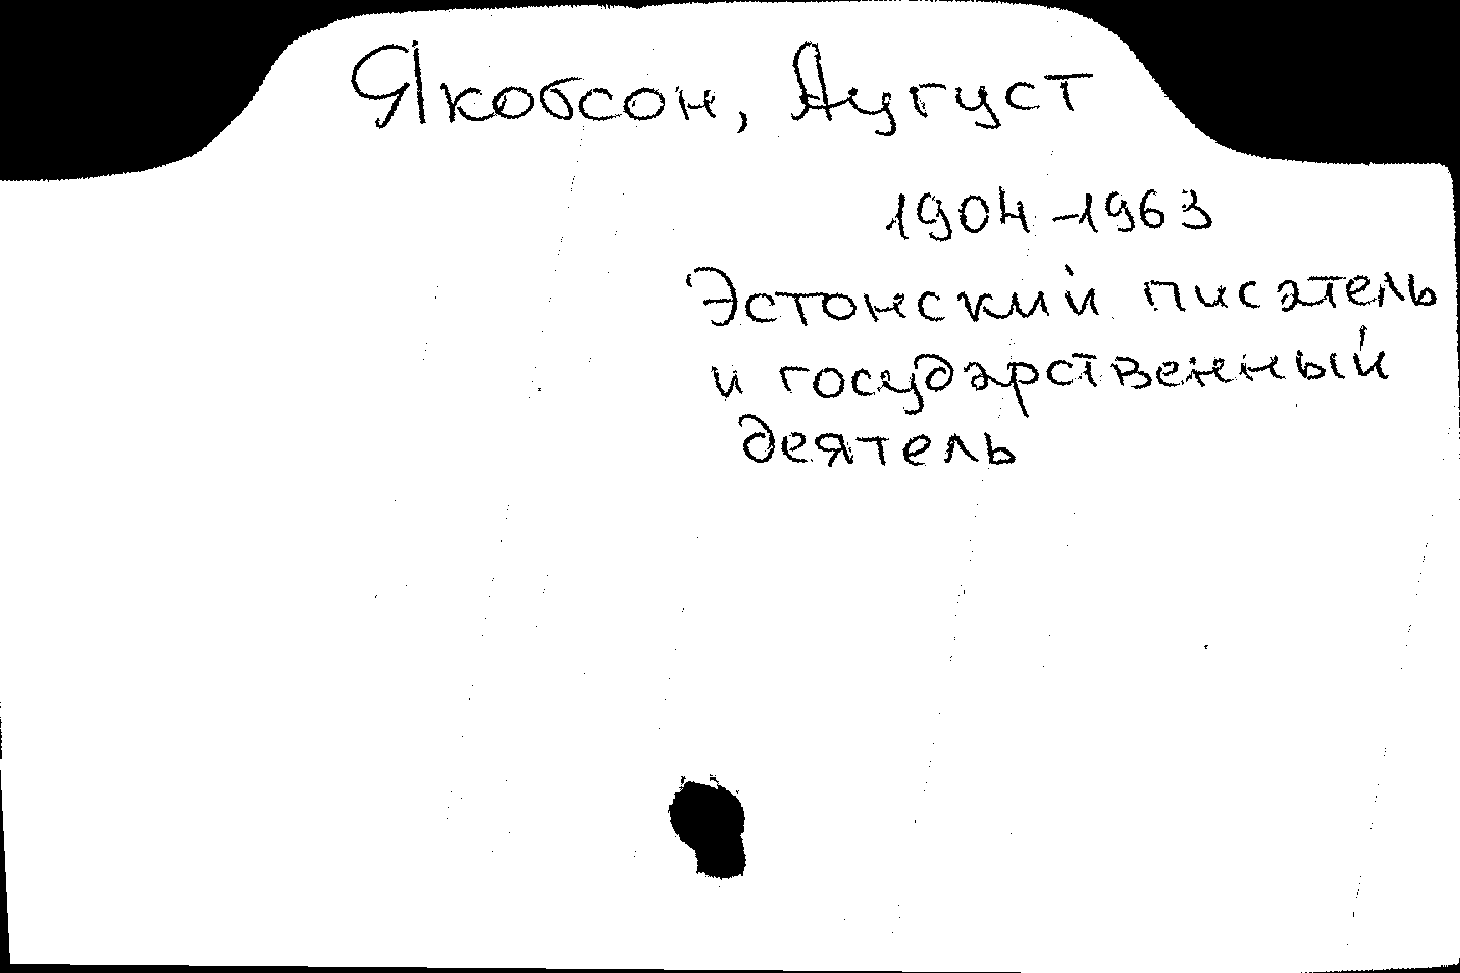 Якобсон, Аугуст
1904-1963
Эстонский писатель
и государственный
деятель